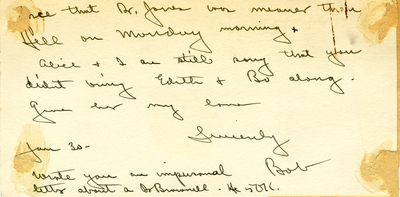 that Dr. Jones was meaner than
Hell on Monday morning &
Alice & I are still sorry that you
didn't bring Edith & Bo along.
Give her my love
Sincerely
Bob
Jan 30-
Wrote you an impersonal
letter about a Dr Brownell. He is O.K.